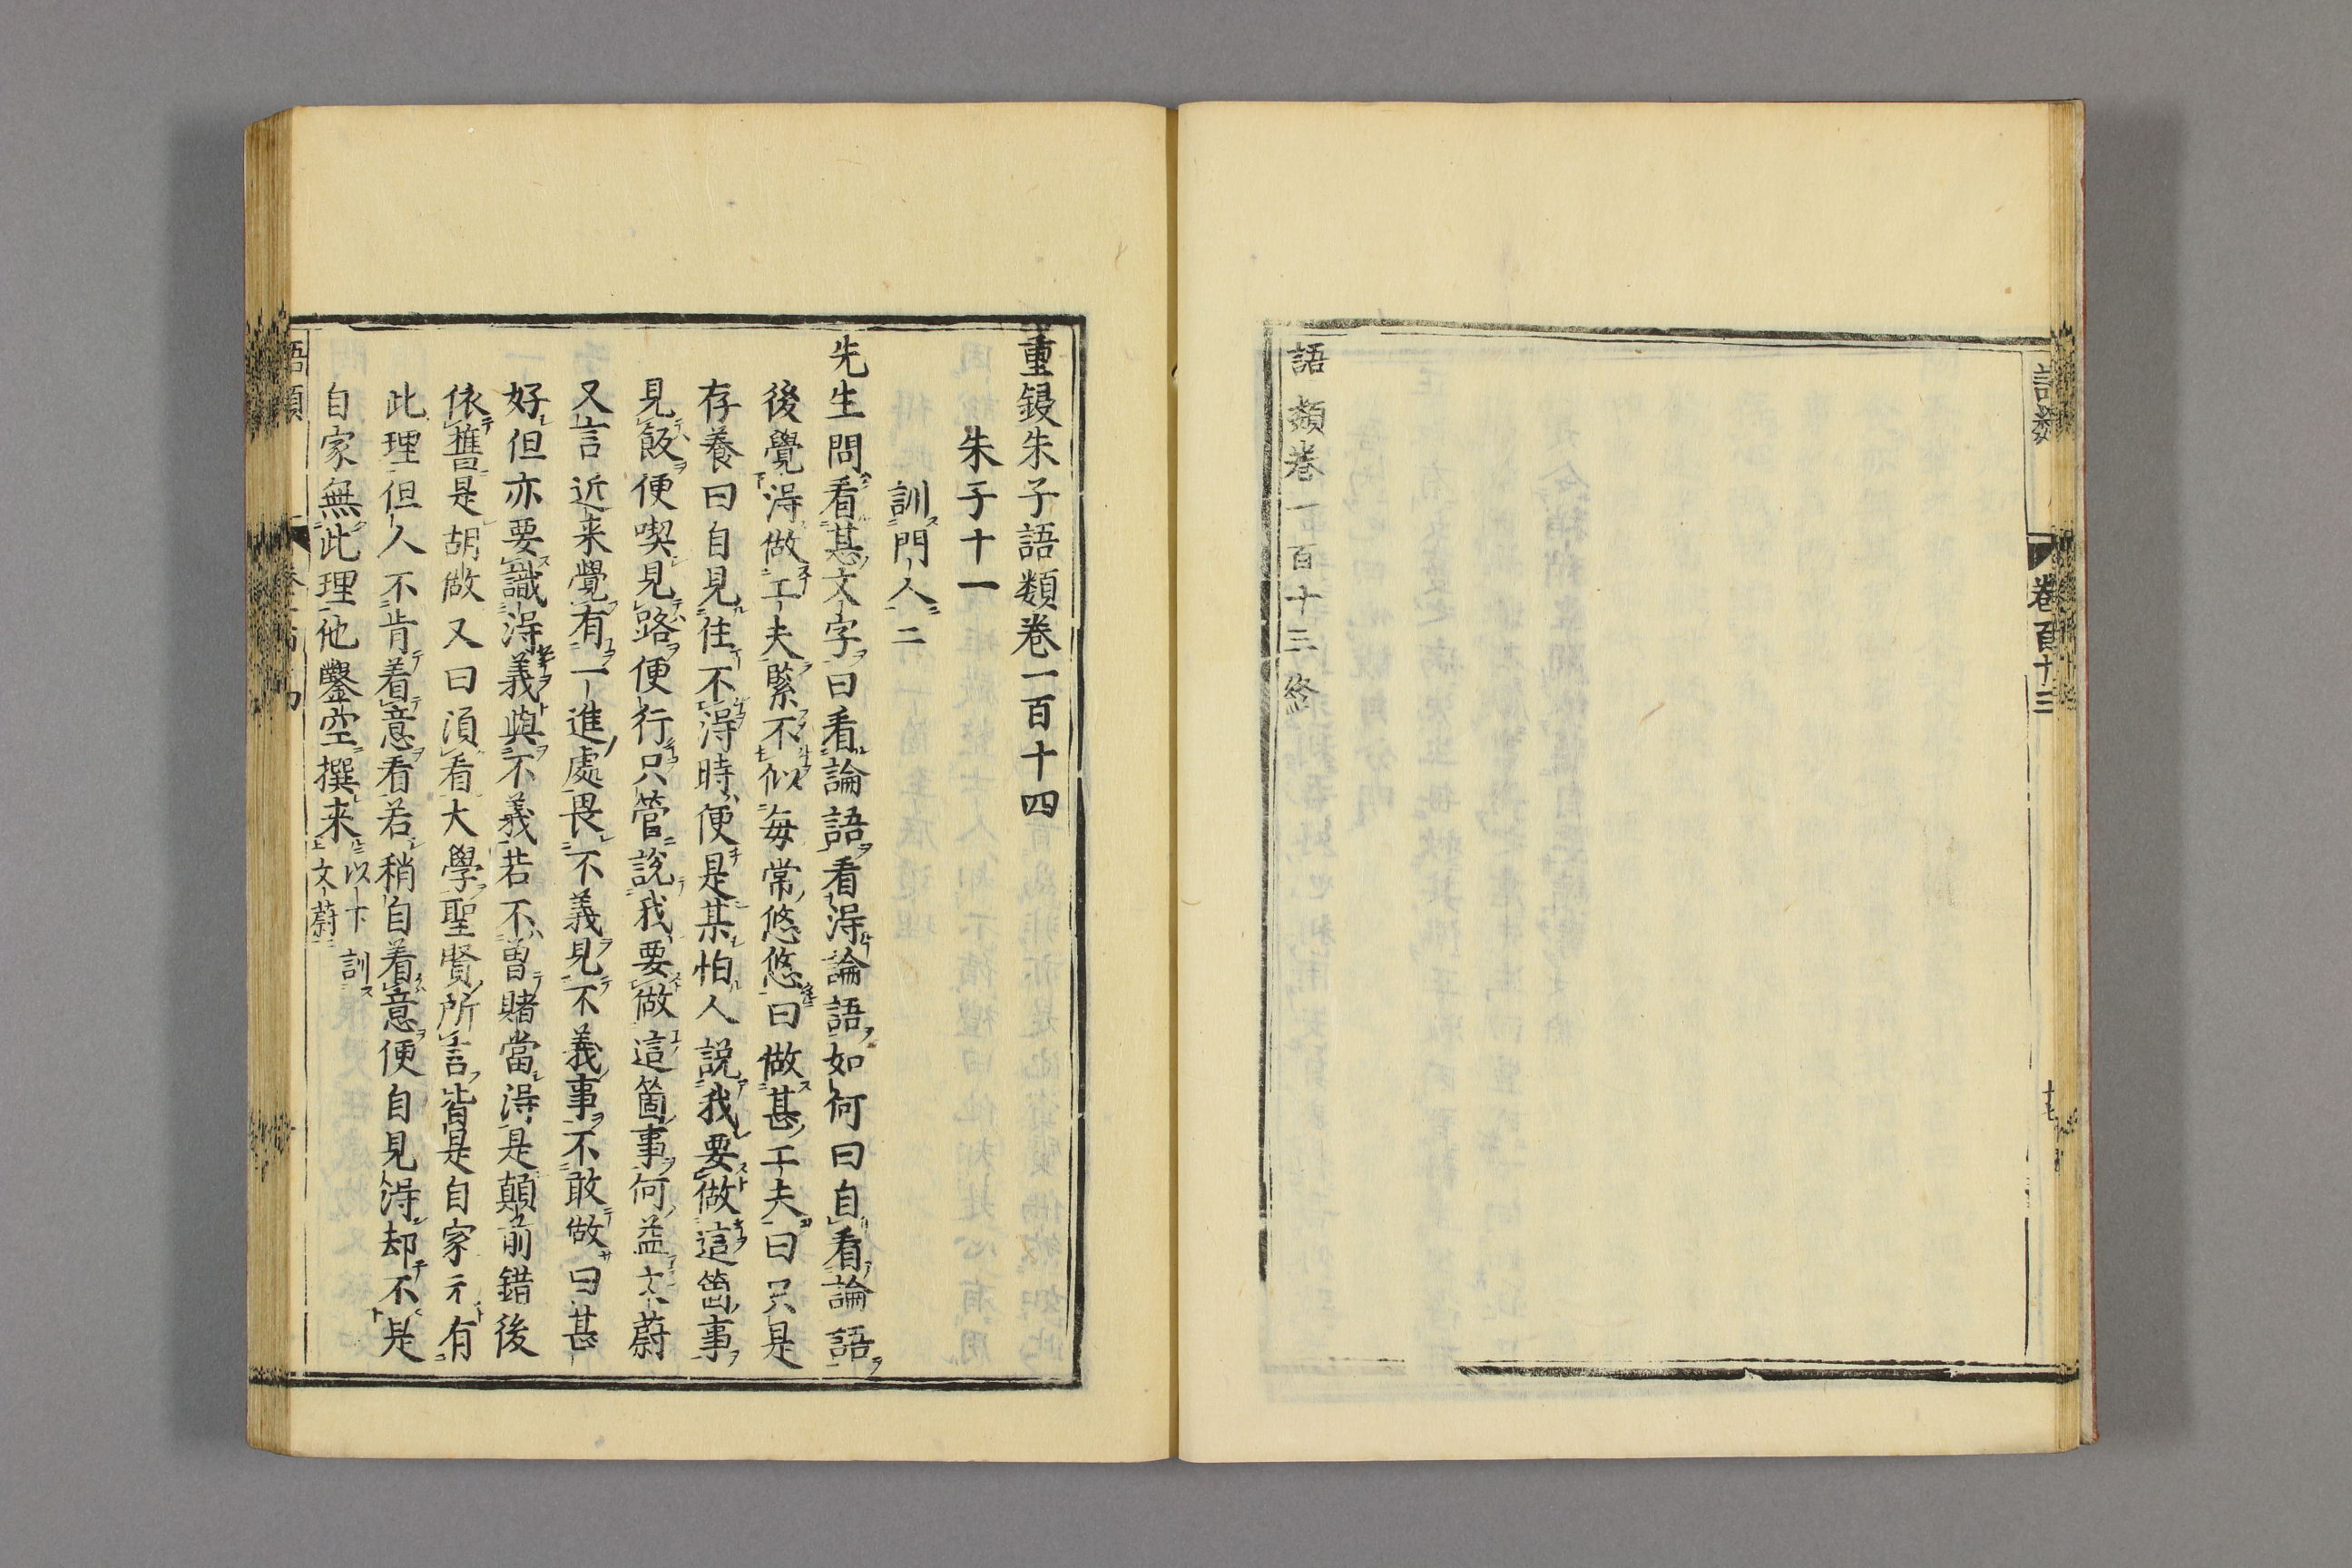 語類
卷百十三
十七
語類卷一百十三終
重鋟朱子語類卷一百十四
朱子十一
訓門人二
先生問看甚文字曰看論語看得論語如何曰自看論語
後覺得做工夫緊不似每常悠悠曰做甚工夫曰只是
存養曰自見住不得時便是某怕人說我要做這箇事
見飯便喫見路便行只管說我要做這箇事何益文蔚
又言近来覺有一進處畏不義見不義事不敢做曰甚
好但亦要識得義與不義若不曾睹當得是顛前錯後
依舊是胡做又曰須看大學聖賢所言皆是自家元有
此理但人不肯着意看若稍自着意便自見得却不是
自家無此理他鑿空撰来
以下訓
文蔚
語類